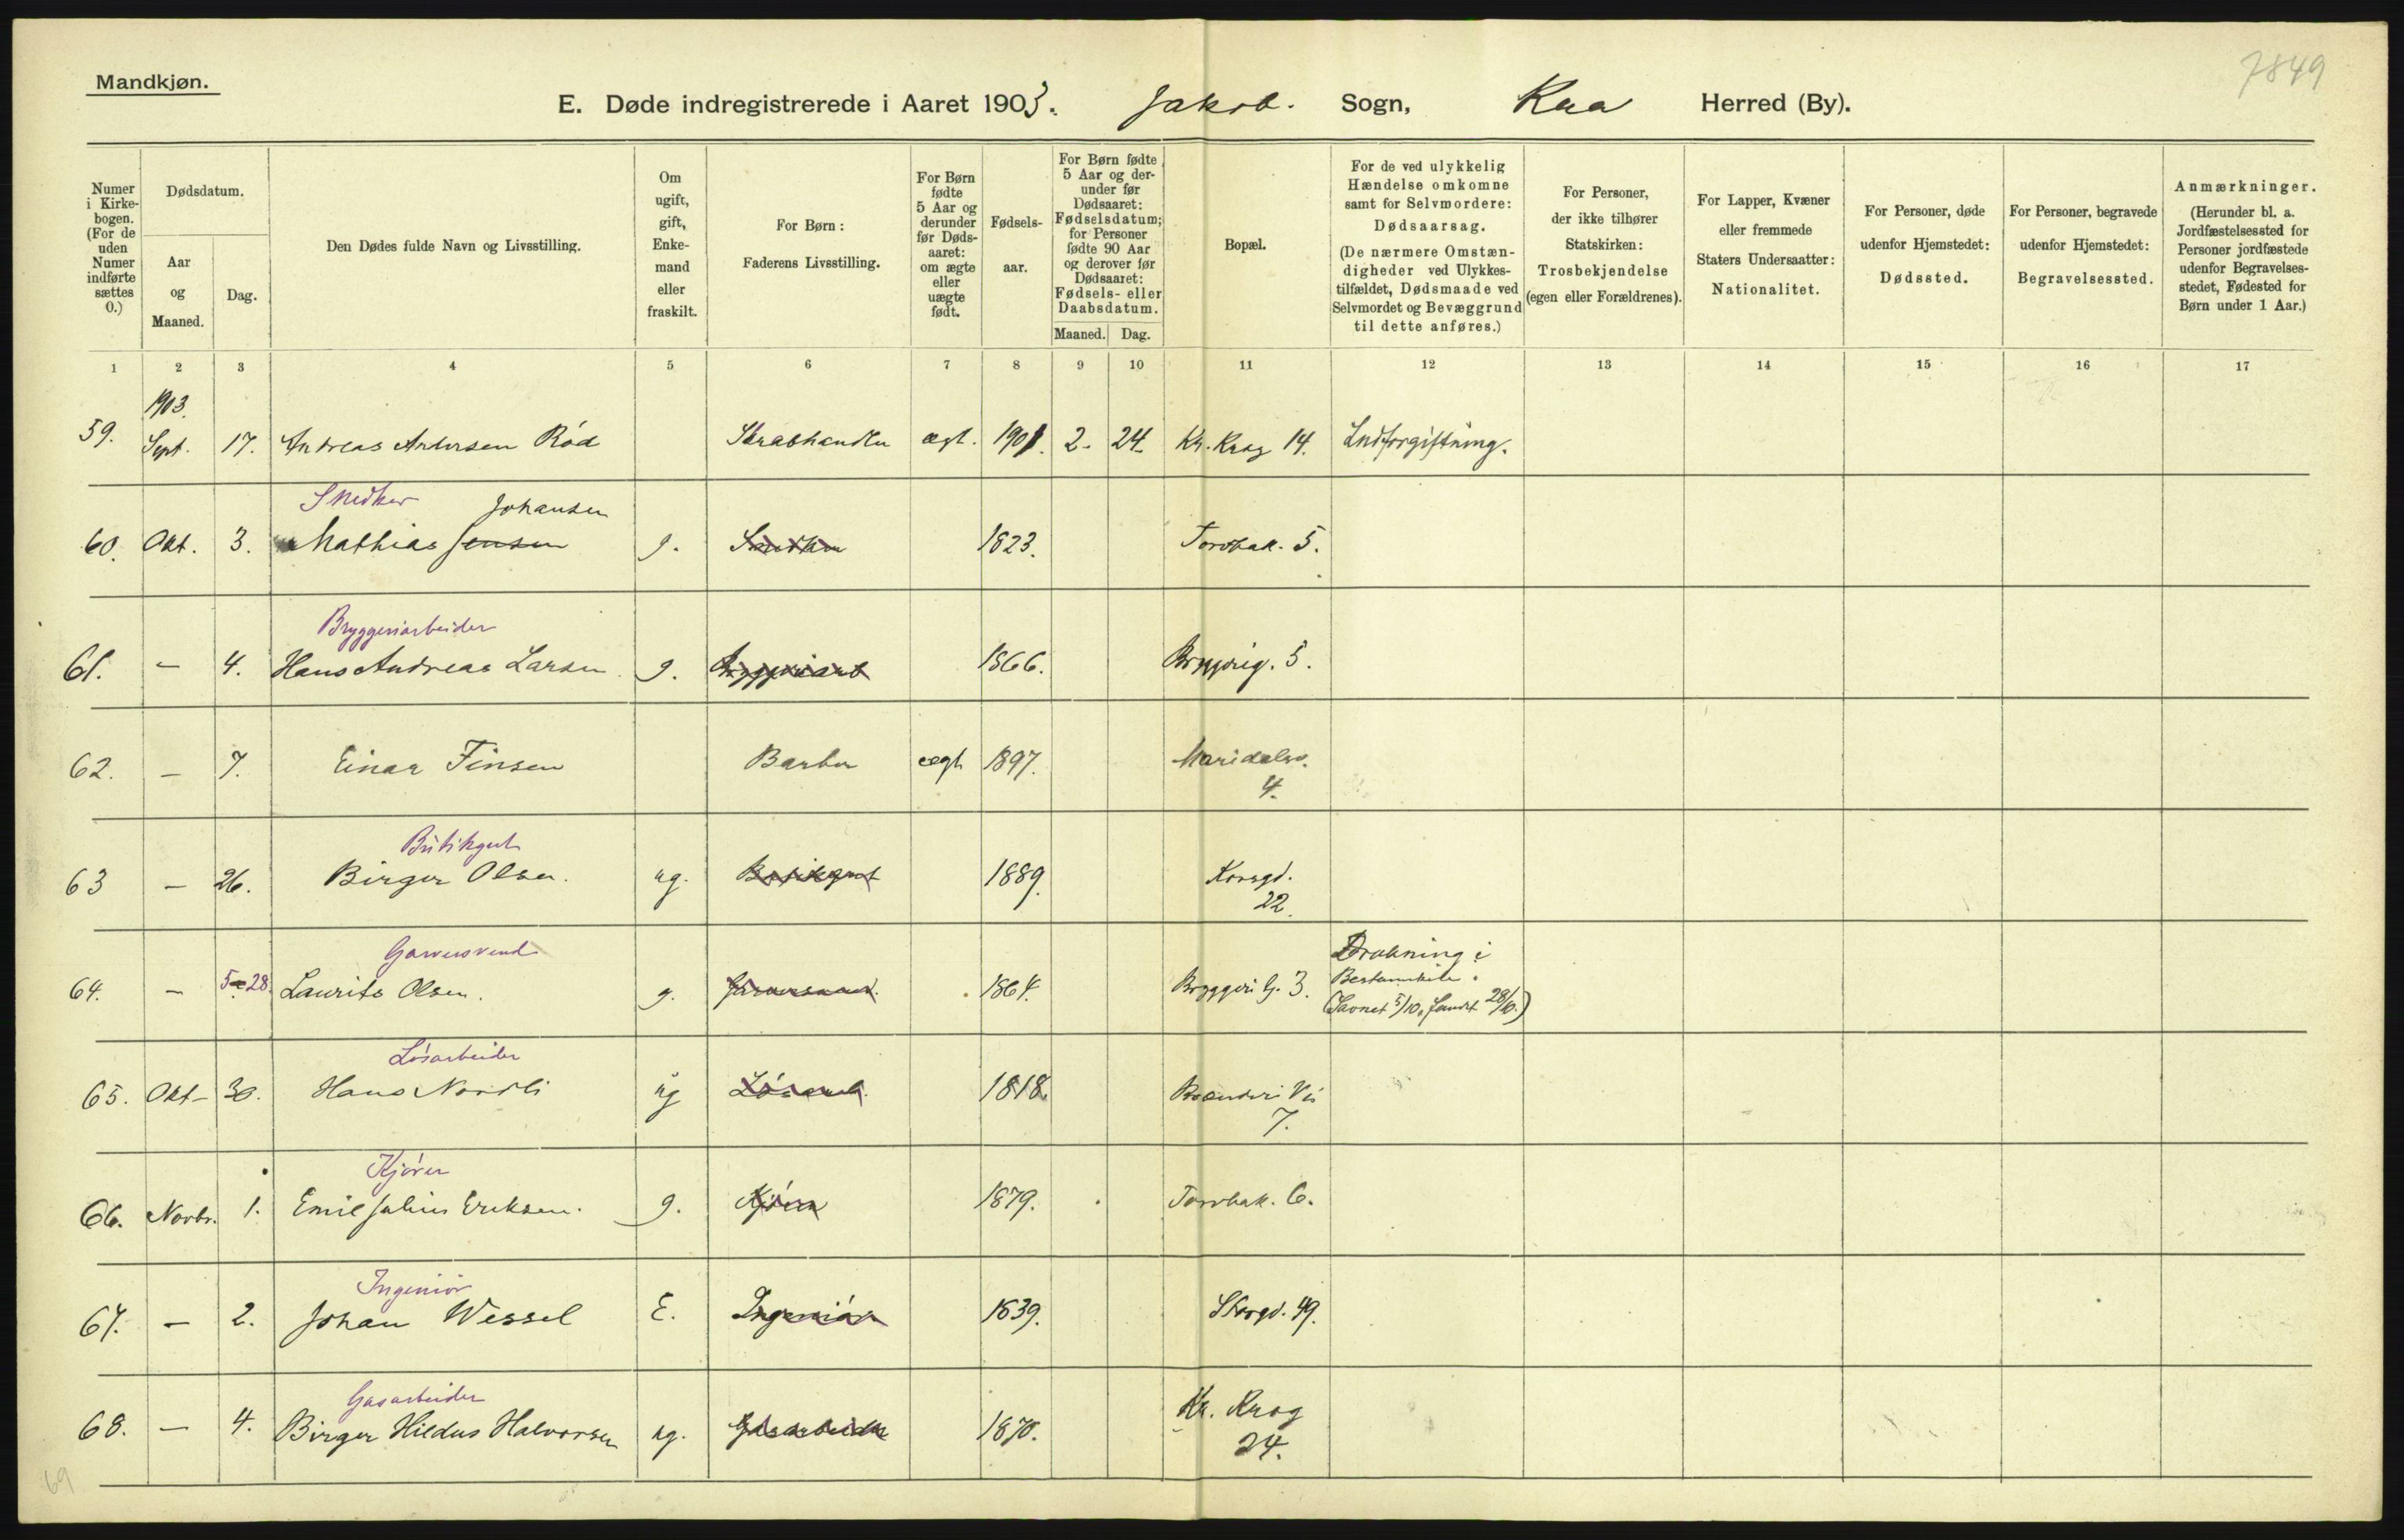 Mandkjøn.
7849
E. Døde indregistrerede i Aaret 1903. Jakob. Sogn, Kra Herred (By).
Numer i Kirkebogen. (For de uden Numer indførte sættes 0.)
Dødsdatum.
Aar og Maaned.
Dag.
Den Dødes fulde Navn og Livsstilling.
Om ugift, gift, Enkemand eller fraskilt.
For Børn: Faderens Livsstilling.
For Børn fødte 5 Aar og derunder før Dødsaaret: om ægte eller uægte født.
Fødselsaar.
For Børn fødte 5 Aar og derunder før Dødsaaret: Fødselsdatum; for Personer fødte 90 Aar og derover før Dødsaaret: Fødsels- eller Daabsdatum.
Maaned. Dag.
Bopæl.
For de ved ulykkelig Hændelse omkomne samt for Selvmordere: Dødsaarsag. (De nærmere Omstændigheder ved Ulykkestilfældet, Dødsmaade ved Selvmordet og Bevæggrund til dette anføres.)
For Personer, der ikke tilhører Statskirken: Trosbekjendelse (egen eller Forældrenes).
For Lapper, Kvæner eller fremmede Staters Undersaatter: Nationalitet.
For Personer, døde udenfor Hjemstedet: Dødssted.
For Personer, begravede udenfor Hjemstedet: Begravelsessted.
Anmærkninger. (Herunder bl. a. Jordfæstelsessted for Personer jordfæstede udenfor Begravelsesstedet, Fødested for Børn under 1 Aar.)
1 2 3 4 5 6 7 8 9 10 11 12 13 14 15 16 17
1903.
59. Sept. 17. Andreas Andersen Rød Skrabhandler ægt. 1901. 2. 24. Kr. Krog 14. Ludforgiftning.
Snedker Johansen
60. Okt. 3. Mathias Jensen g. Snedker 1823. Torvbak. 5.
Bryggeriarbeider
61. – 4. Hans Andreas Larsen g. Bryggeriarb 1866. Bryggerig. 5.
62. – 7. Einar Finsen Barber ægt 1897. Maridalsv.
4.
Butikgut
63 – 26. Birger Olsen. ug. Butikgut 1889. Korsgd.
22.
Garversvend Drukning i
64. – 5-28. Laurits Olsen. g. Garversvend. 1864. Bryggeri G. 3.
(Savnet 5/10, fundt 28/10.)
Løsarbeider
65. Okt– 30. Hans Nordli ug Løsarb. 1818. Brænderi Vei
7.
Kjører
66. Novbr. 1. Emil Julius Eriksen. g. Kjører 1879. Torvbak. 6.
Ingeniør
67. – 2. Johan Wessel E. Ingeniør 1839. Storgd. 49.
Gasarbeider Kr. Krog
68. – 4. Birger Hildus Halvorsen ug. Gasarbeider 1870. 24.
69